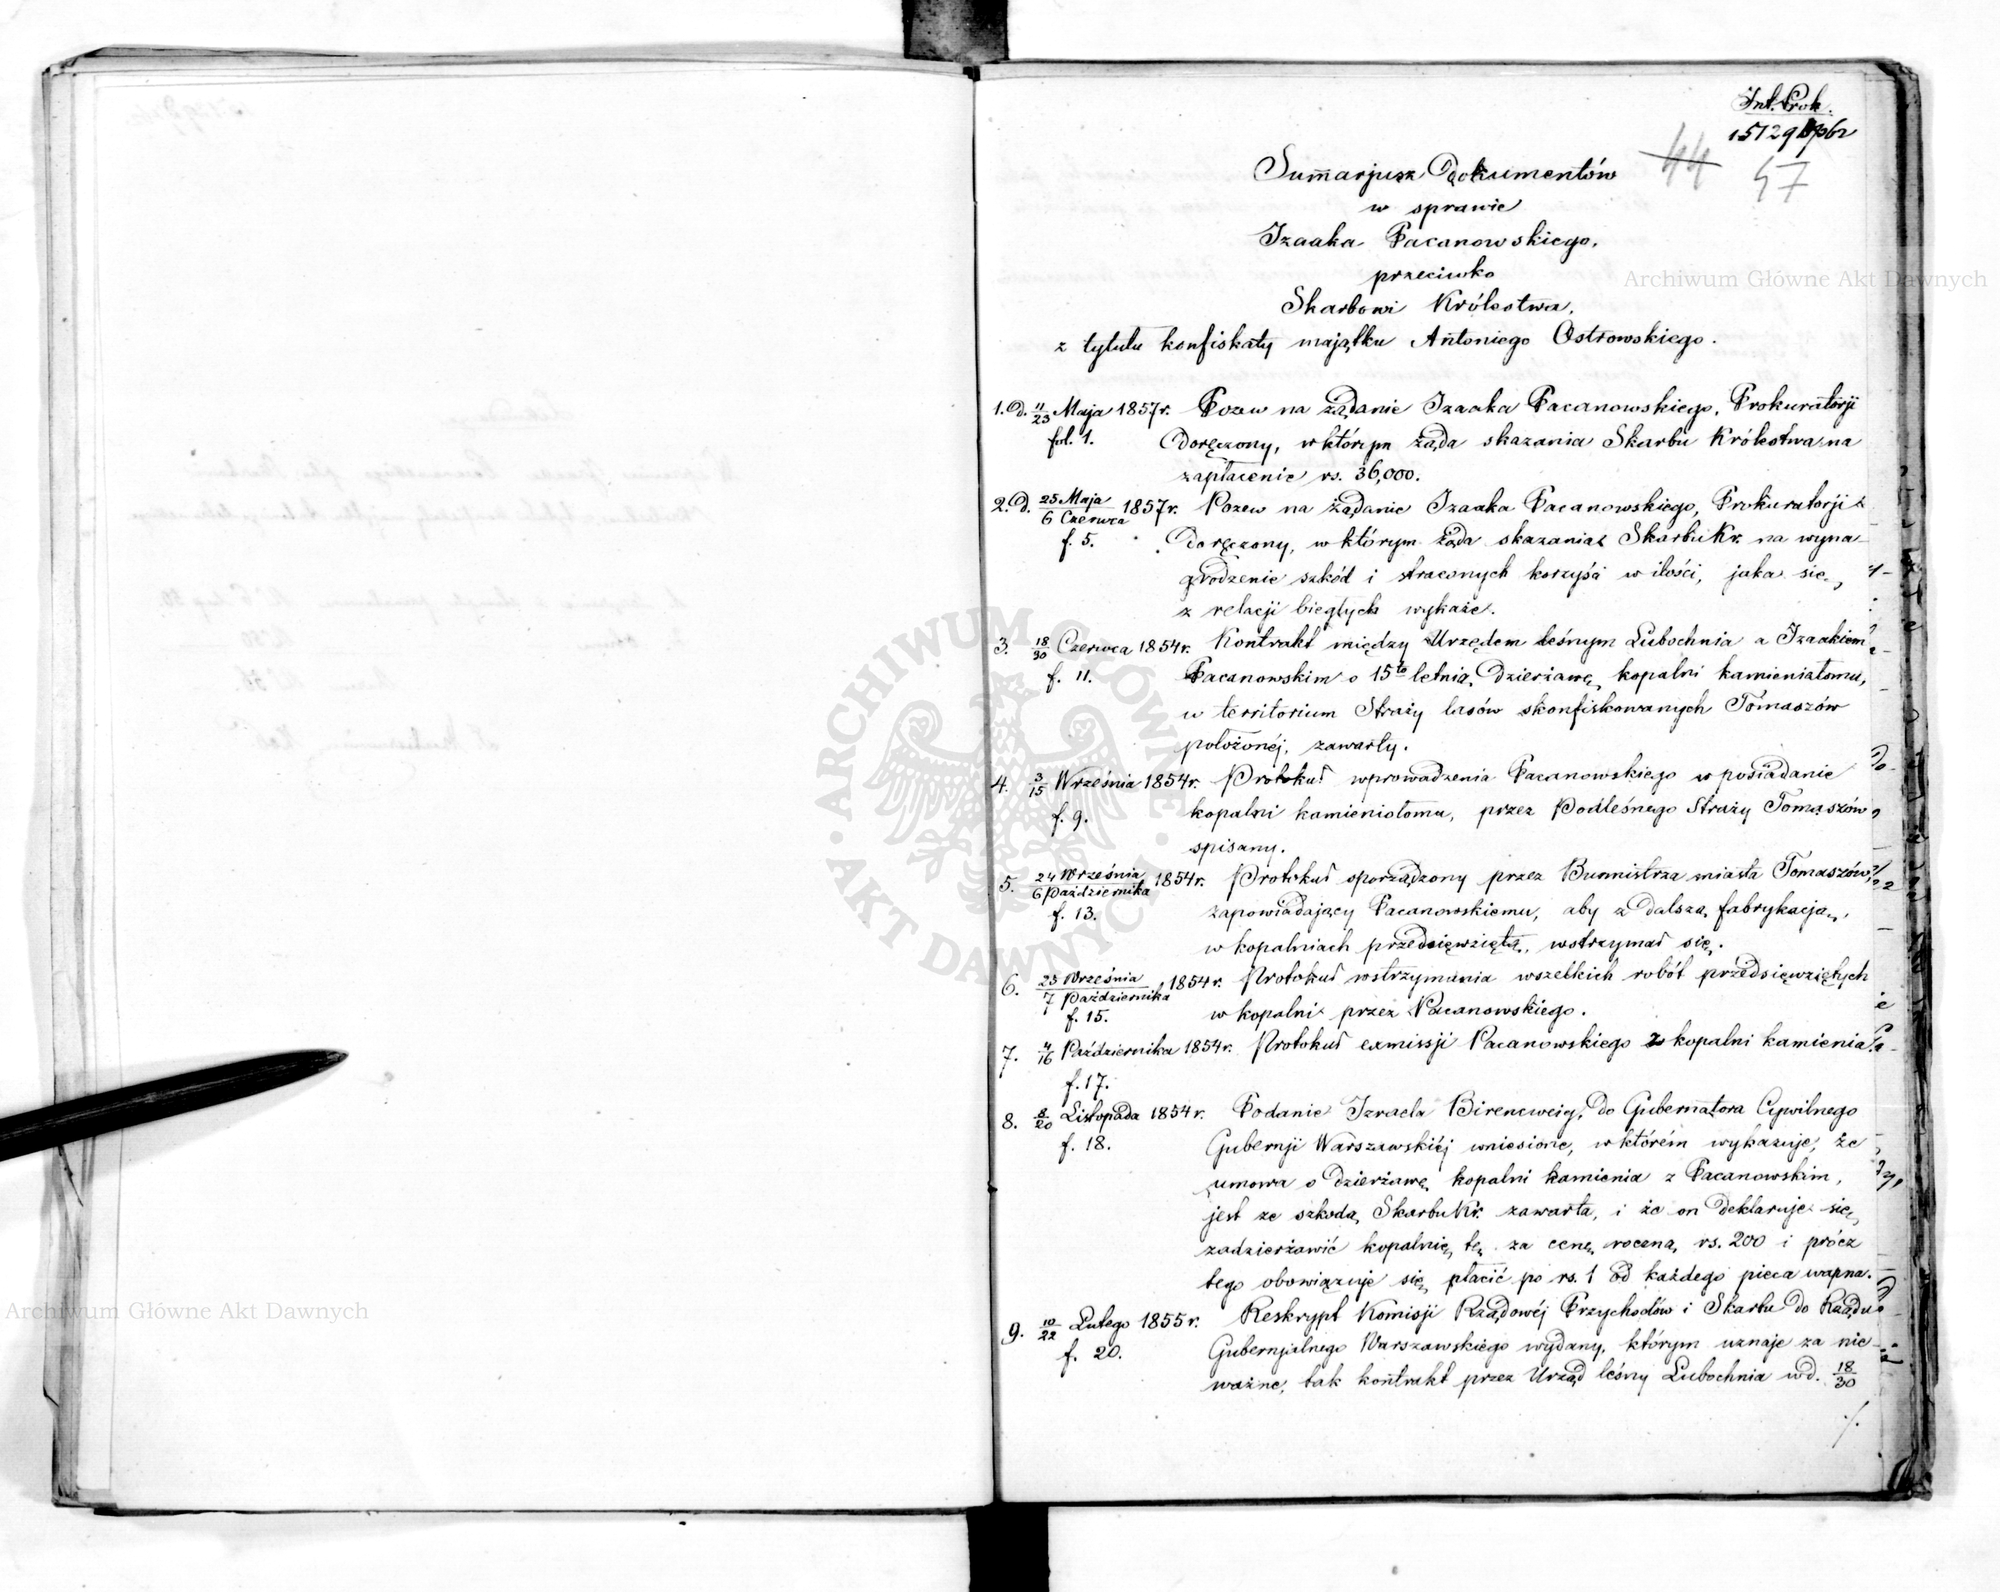 Int. Prok.
15129
44 47
Sumarjusz Dokumentów
w sprawie
Izaaka Pacanowskiego,
przeciwko
Skarbowi Królestwa,
z tytułu konfiskaty majątku Antoniego Ostrowskiego.
1. D. 11/23 Maja 1857r. Pozew na żądanie Izaaka Pacanowskiego, Prokuratorji
fol. 1. doręczony, w którym żąda skazania Skarbu Królestwa na
zapłacenie rs. 36,000.
2. D. 25 Maja/6 Czerwca 1857r. Pozew na żądanie Izaaka Pacanowskiego, Prokuratorji
f. 5. doręczony, w którym żąda skazania Skarbu Kr. na wyna-
grodzenie szkód i straconych korzyści w ilości, jaka się,
z relacji biegłych wykaże.
3. 18/30 Czerwca 1854r. Kontrakt między Urzędem leśnym Lubochnia a Izaakiem
f. 11. Pacanowskim o 15to letnią dzierżawę kopalni kamieniołomu,
w territorium Straży lasów skonfiskowanych Tomaszów
położonéj, zawarty.
4. 3/15 Września 1854r. Protokuł wprowadzenia Pacanowskiego w posiadanie
f. 9. kopalni kamieniołomu, przez Podleśnego Straży Tomaszów
spisany.
5. 24 Września/6 Października 1854r. Protokuł sporządzony przez Burmistrza miasta Tomaszów,
f. 13. zapowiadający Pacanowskiemu, aby z dalszą fabrykacją,
w kopalniach przedsięwziętą, wstrzymał się.
6. 25 Września/7 Października 1854r. Protokuł wstrzymania wszelkich robót przedsięwziętych
f. 15. w kopalni przez Pacanowskiego.
7. 4/16 Października 1854r. Protokuł exmissji Pacanowskiego z kopalni kamienia.
f. 17.
8. 8/20 Listopada 1854r. Podanie Izraela Birencweig, do Gubernatora Cywilnego
f. 18. Gubernji Warszawskiéj wniesione, w którém wykazuje, że
umowa o dzierżawę kopalni kamienia z Pacanowskim,
jest ze szkodą Skarbu Kr. zawarta, i że on deklaruje się
zadzierżawić kopalnię tę za cenę roczną rs. 200 i prócz
tego obowiązuje się płacić po rs. 1 od każdego pieca wapna.
9. 10/22 Lutego 1855r. Reskrypt Komisji Rządowéj Przychodów i Skarbu do Rządu
f. 20. Gubernjalnego Warszawskiego wydany, którym uznaje za nie-
ważne, tak kontrakt przez Urząd leśny Lubochnia w d. 18/30
./.
Archiwum Główne Akt Dawnych
Archiwum Główne Akt Dawnych
ARCHIWUM GŁÓWNE · AKT DAWNYCH ·